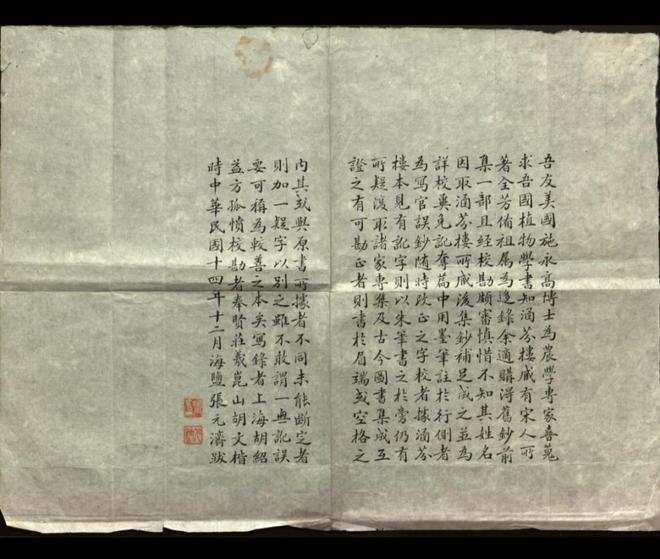 吾友美國施永高博士為農學專家喜蒐
求吾國植物學書知涵芬樓藏有宋人所
著全芳備祖屬為迻錄余適購得舊鈔前
集一部且經校勘頗審慎惜不知其姓名
因取涵芬樓所藏後集鈔補足成之並為
詳校冀免訛奪篇中用墨筆註於行側者
為寫官誤鈔隨時改正之字校者據涵芬
樓本見有訛字則以朱筆書之於旁仍有
所疑復取諸家專集及古今圖書集成互
證之有可勘正者則書於眉端或空格之
內其或與原書所據者不同未能斷定者
則加一疑字以別之雖不敢謂一無訛誤
要可稱為較善之本矣寫錄者上海胡紹
益方孤憤校勘者奉賢莊羲崑山胡文楷
時中華民國十四年十二月海鹽張元濟跋